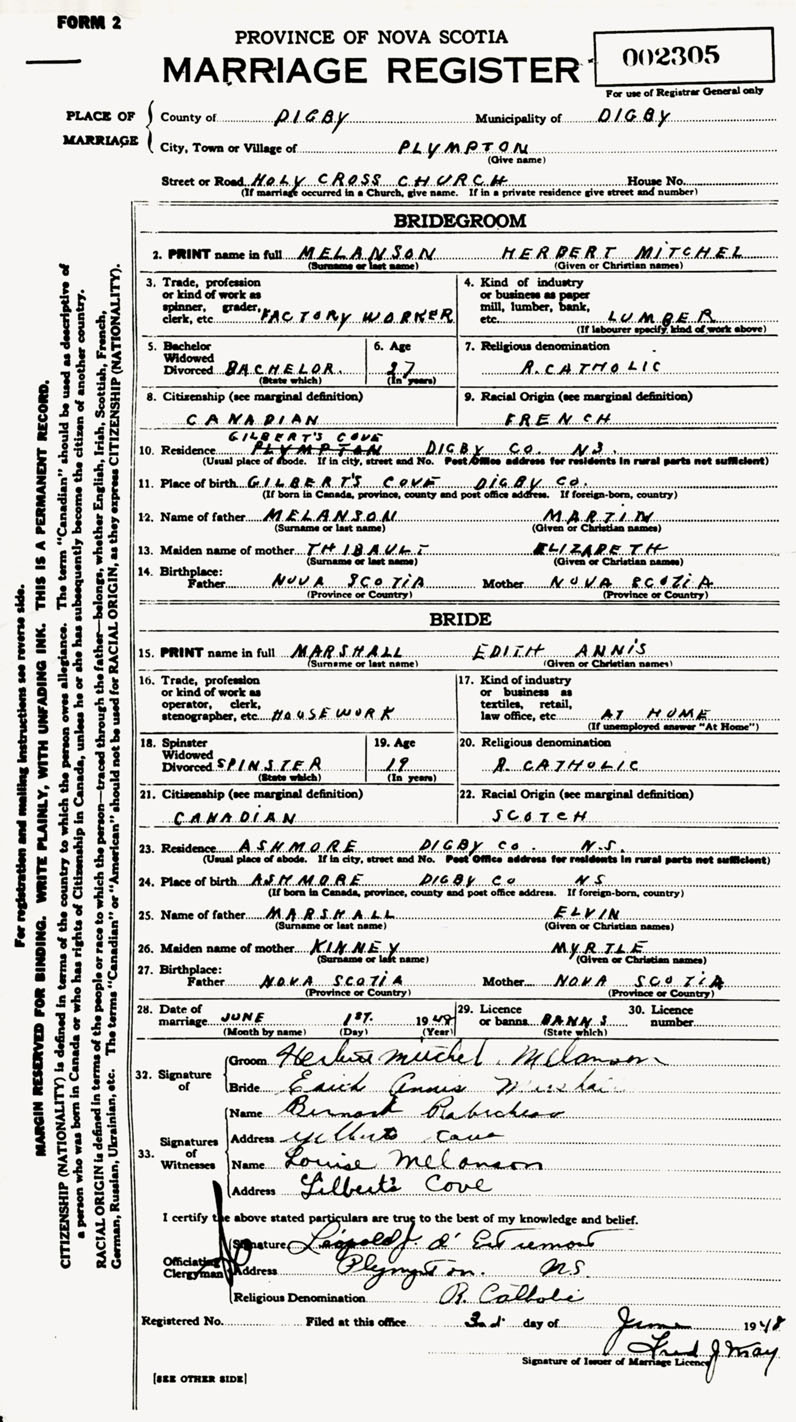 FORM 2
PROVINCE OF NOVA SCOTIA
MARRIAGE REGISTER
002305
For use of Registrar General only
PLACE OF MARRIAGE
County of DIGBY Municipality of DIGBY
City, Town or Village of PLYMPTON
(Give name)
Street or Road HOLY CROSS CHURCH House No.
(If marriage occurred in a Church, give name. If in a private residence give street and number)
BRIDEGROOM
2. PRINT name in full MELANSON HERBERT MITCHEL
(Surname or last name) (Given or Christian names)
3. Trade, profession or kind of work as spinner, grader, clerk, etc. FACTORY WORKER
4. Kind of industry or business as paper mill, lumber, bank, etc. LUMBER
(If labourer specify kind of work above)
5. Bachelor Widowed Divorced BACHELOR.
(State which)
6. Age 37
(In years)
7. Religious denomination
R. CATHOLIC
8. Citizenship (see marginal definition)
CANADIAN
9. Racial Origin (see marginal definition)
FRENCH
GILBERT'S COVE
10. Residence PLYMPTON DIGBY CO. NS.
(Usual place of abode. If in city, street and No. Post Office address for residents in rural parts not sufficient)
11. Place of birth GILBERT'S COVE DIGBY CO.
(If born in Canada, province, county and post office address. If foreign-born, country)
12. Name of father MELANSON MARTIN
(Surname or last name) (Given or Christian names)
13. Maiden name of mother THIBAULT ELIZABETH
(Surname or last name) (Given or Christian names)
14. Birthplace:
Father NOVA SCOTIA Mother NOVA SCOTIA
(Province or Country) (Province or Country)
BRIDE
15. PRINT name in full MARSHALL EDITH ANNIS
(Surname or last name) (Given or Christian names)
16. Trade, profession or kind of work as operator, clerk, stenographer, etc. HOUSEWORK
17. Kind of industry or business as textiles, retail, law office, etc. AT HOME
(If unemployed answer "At Home")
18. Spinster Widowed Divorced SPINSTER
(State which)
19. Age 19
(In years)
20. Religious denomination
R. CATHOLIC
21. Citizenship (see marginal definition)
CANADIAN
22. Racial Origin (see marginal definition)
SCOTCH
23. Residence ASHMORE DIGBY CO. N.S.
(Usual place of abode. If in city, street and No. Post Office address for residents in rural parts not sufficient)
24. Place of birth ASHMORE DIGBY CO NS
(If born in Canada, province, county and post office address. If foreign-born, country)
25. Name of father MARSHALL ELVIN
(Surname or last name) (Given or Christian names)
26. Maiden name of mother KINNEY MYRTLE
(Surname or last name) (Given or Christian names)
27. Birthplace:
Father NOVA SCOTIA Mother NOVA SCOTIA
(Province or Country) (Province or Country)
28. Date of marriage JUNE 1ST. 1948
(Month by name) (Day) (Year)
29. Licence or banns BANNS
(State which)
30. Licence number
32. Signature of
Groom Herbert Mitchel Melanson
Bride Edith Annis
33. Signatures of Witnesses
Name Bernard
Address Gilberts Cove
Name Louise Melanson
Address Gilbert's Cove
I certify the above stated particulars are true to the best of my knowledge and belief.
Officiating Clergyman
Signature Léopold J. d' Entremont
Address Plympton. N.S.
Religious Denomination R. Catholic
Registered No. Filed at this office 3rd day of June 1948
Fred J May
Signature of Issuer of Marriage Licence
[SEE OTHER SIDE]
For registration and mailing instructions see reverse side.
MARGIN RESERVED FOR BINDING. WRITE PLAINLY, WITH UNFADING INK. THIS IS A PERMANENT RECORD.
CITIZENSHIP (NATIONALITY) is defined in terms of the country to which the person owes allegiance. The term "Canadian" should be used as descriptive of
a person who was born in Canada or who has rights of Citizenship in Canada, unless he or she has subsequently become the citizen of another country.
RACIAL ORIGIN is defined in terms of the people or race to which the person—traced through the father—belongs, whether English, Irish, Scottish, French,
German, Russian, Ukrainian, etc. The terms "Canadian" or "American" should not be used for RACIAL ORIGIN, as they express CITIZENSHIP (NATIONALITY).